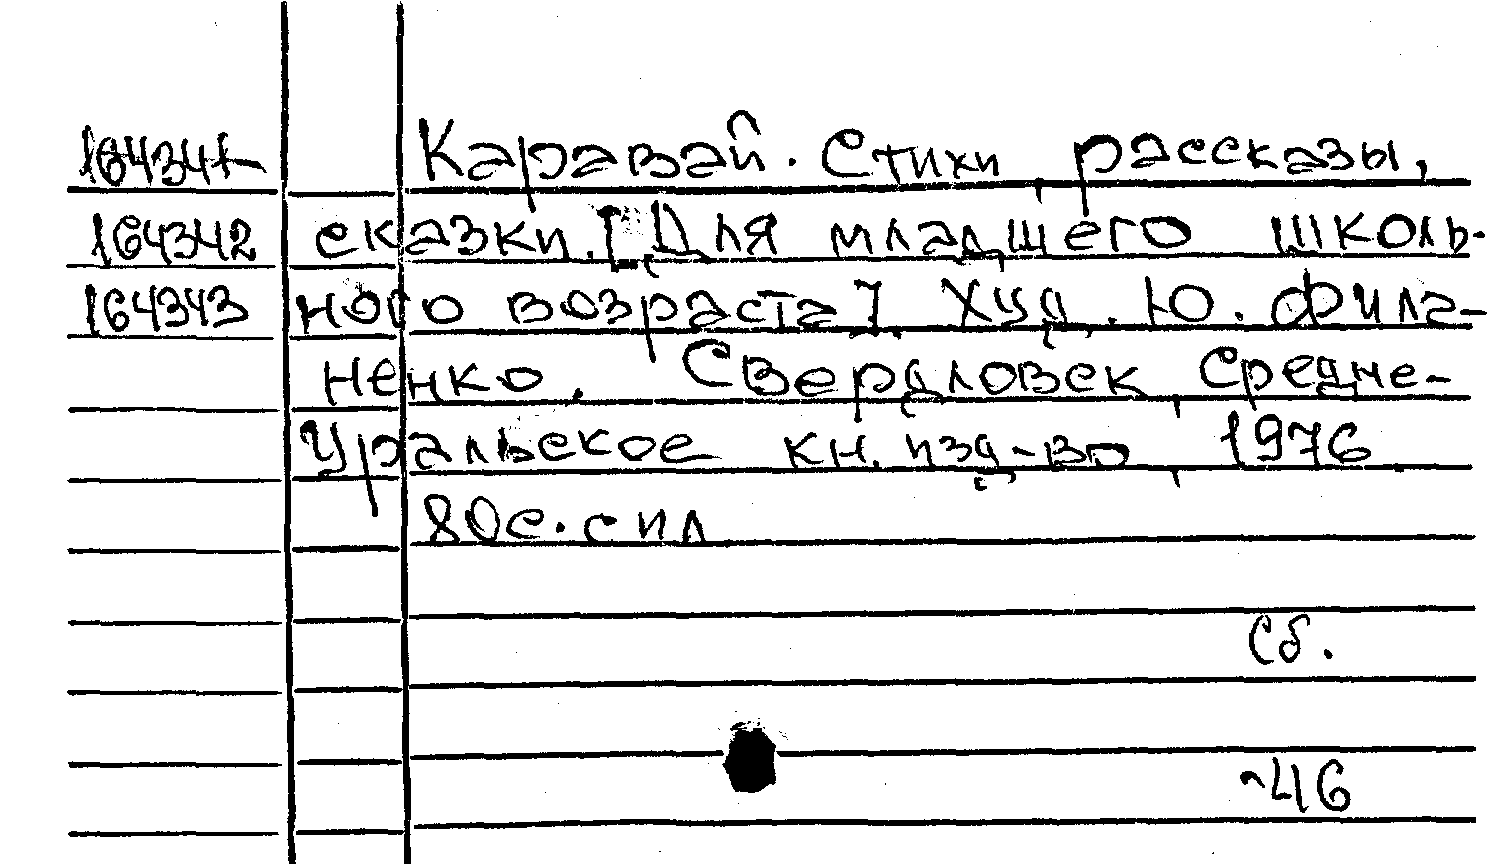 164341 Каравай. Стихи, рассказы,
164342 сказки. [Для младшего школь-
164343 ного возраста]. Худ. Ю. Фила-
ненко. Свердловск, Средне-
Уральское кн. изд-во, 1976
80с. с ил
Сб.
~46